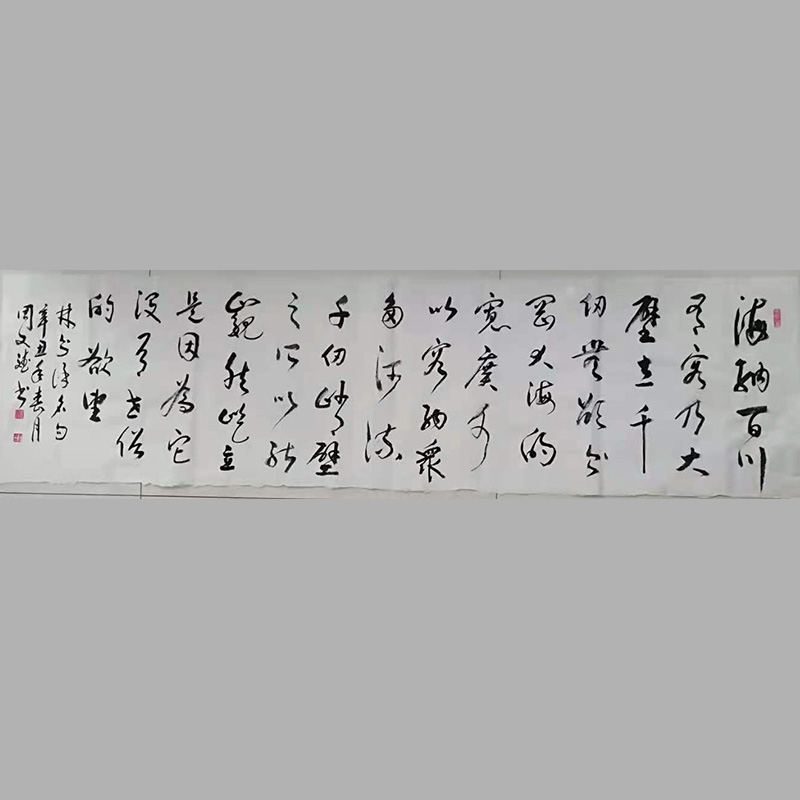 海納百川
有容乃大
壁立千
仞無欲則
剛大海的
寬廣可
以容納眾
多河流
千仞峭壁
之所以能
巍然屹立
是因為它
沒有世俗
的欲望
林則徐名句
辛丑年春月
周文斌书